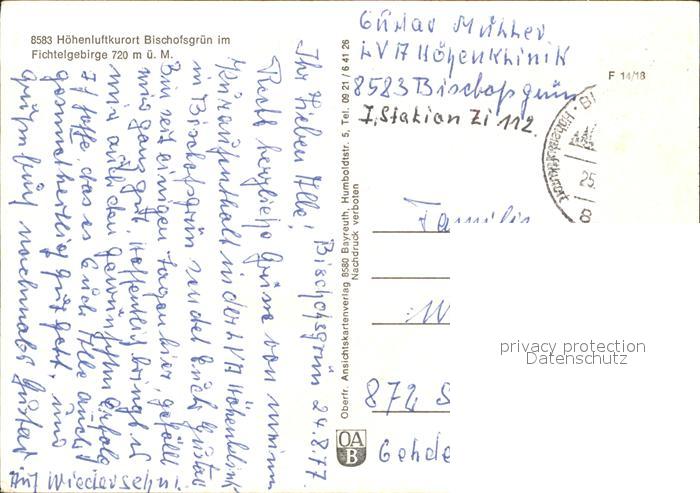 8583 Höhenluftkurort Bischofsgrün im
Fichtelgebirge 720 m ü. M.
Gustav Müller
LVA Höhenklinik
8583 Bischofsgrün
I. Station Zi 112.
F 14/18
Höhenluftkurort
25.
Bischofsgrün 24.8.77
Ihr Lieben Alle!
Recht herzliche Grüße von meinem
Kuraufenthalt in der LVA Höhenklinik
in Bischofsgrün sendet Euch Gustav
Bin seit einigen Tagen hier, gefällt
mir ganz gut, hoffentlich bringt es
mir auch den gewünschten Erfolg
Ich hoffe, das es Euch Alle auch
gesundheitlich gut geht, und
grüße Euch nochmals Gustav
Auf Wiedersehn!
Oberfr. Ansichtskartenverlag 8580 Bayreuth, Humboldtstr. 5, Tel. 09 21 / 6 41 26
Nachdruck verboten
Familie
W
872 S
Gehde
OA
B
privacy protection
Datenschutz